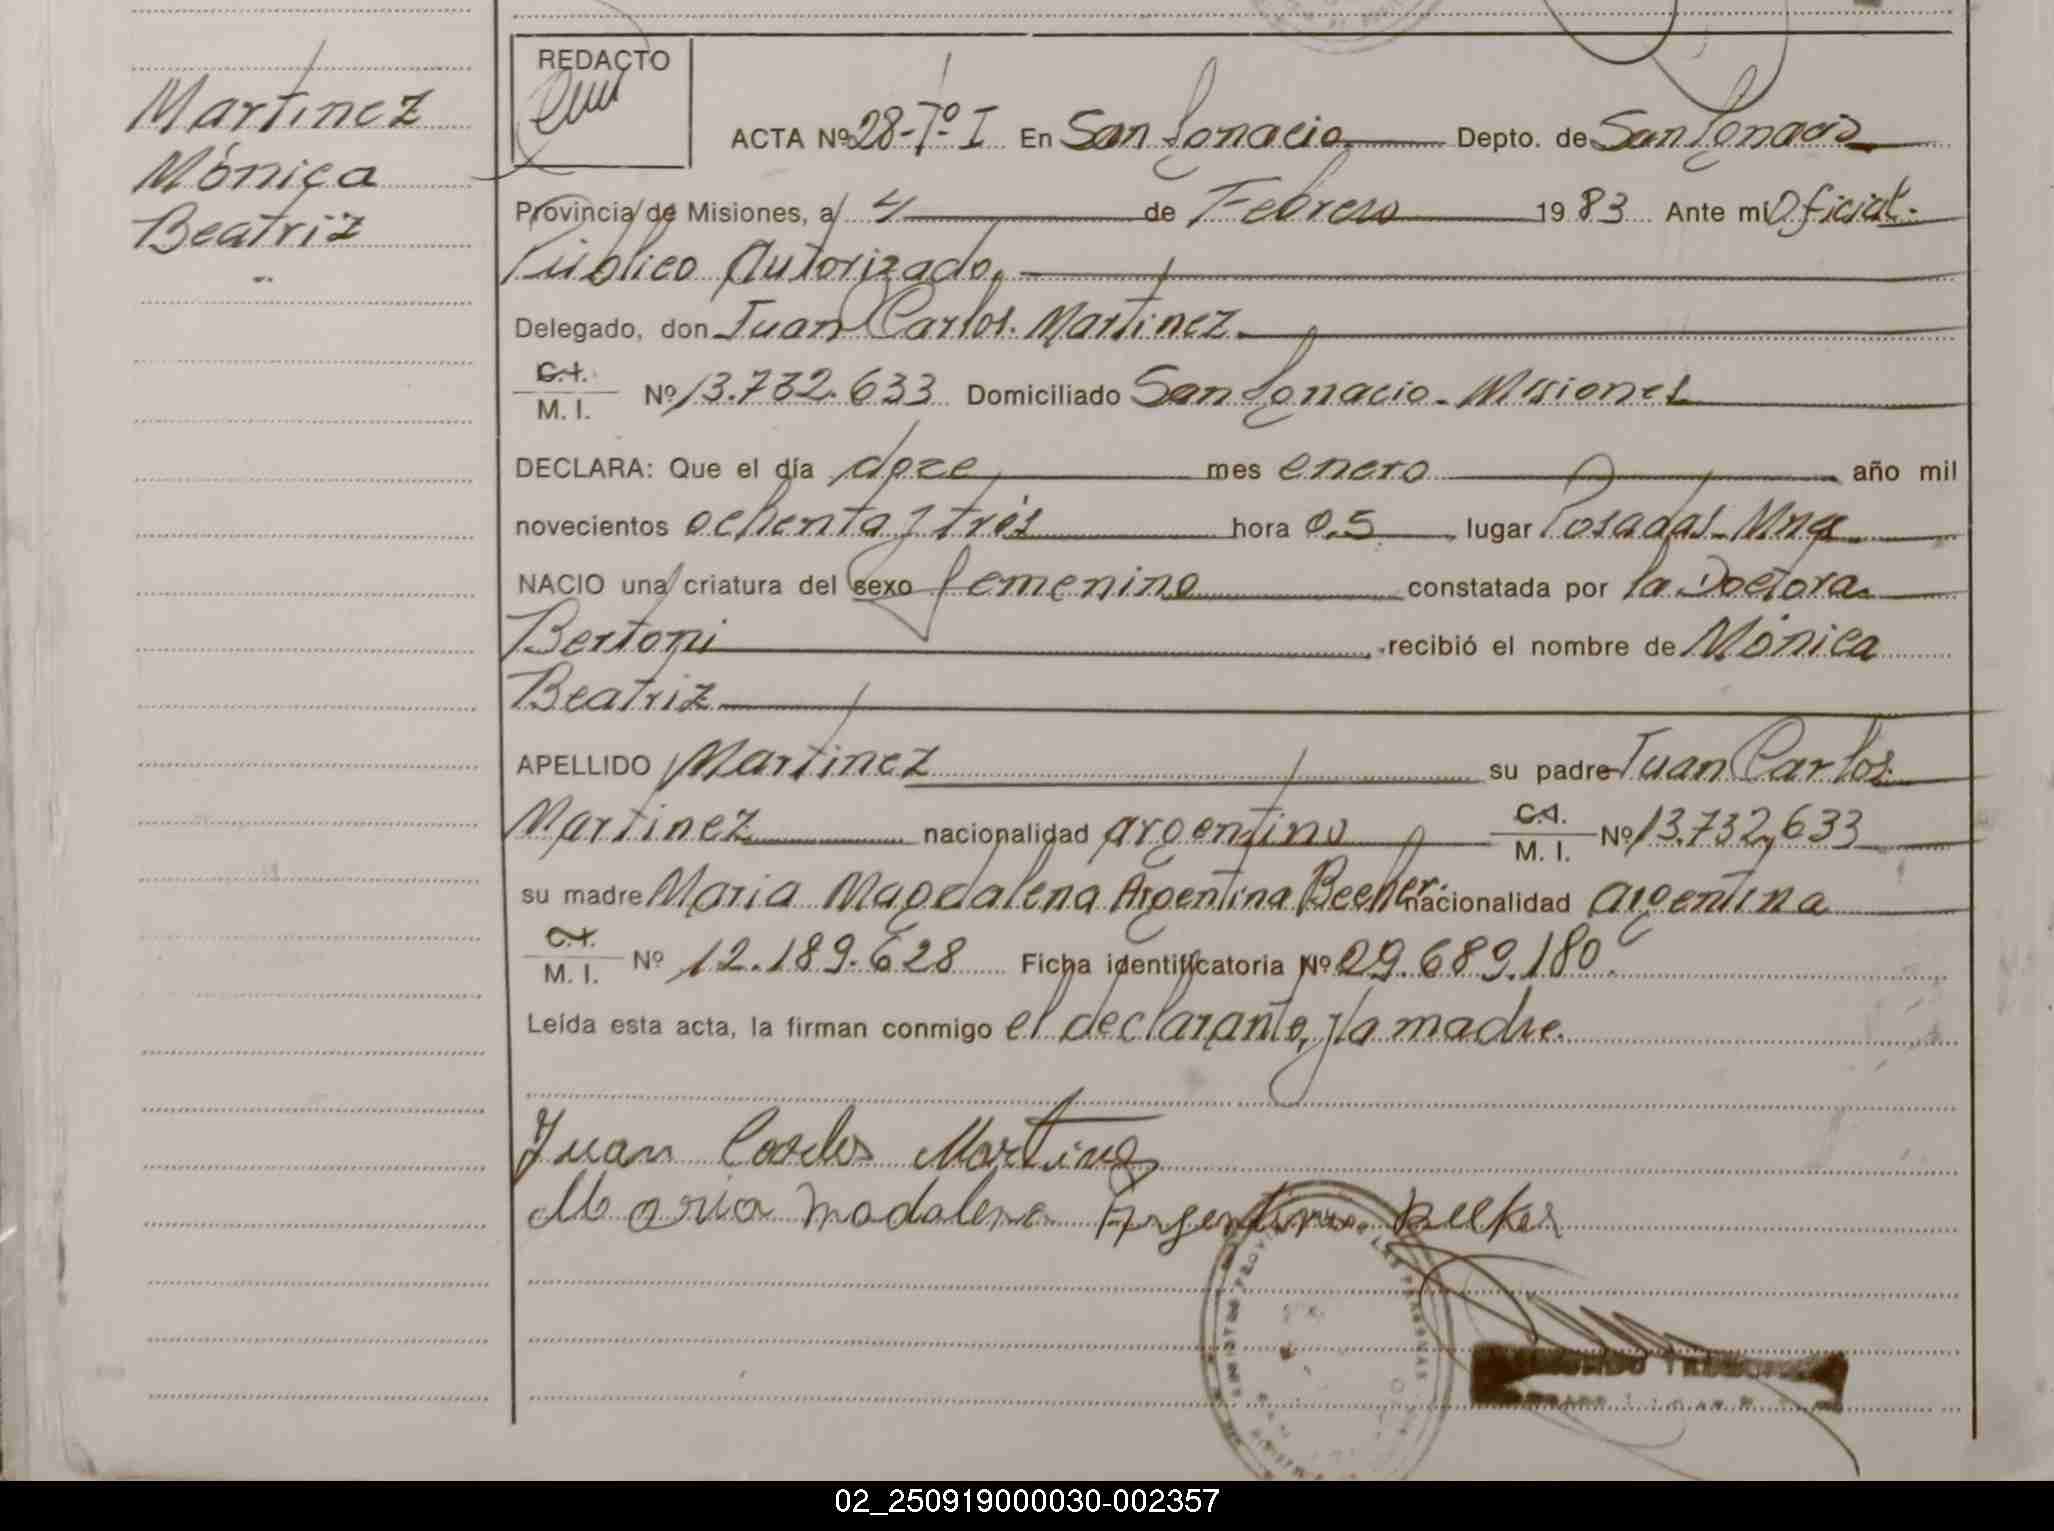 Martinez
Mónica
Beatriz
REDACTO
ACTA Nº 28-Tº I En San Ignacio Depto. de San Ignacio
Provincia de Misiones, a 4 de Febrero 19 83 Ante mi Oficial
Público Autorizado,
Delegado, don Juan Carlos Martinez
C.I.
M. I. Nº 13.732.633 Domiciliado San Ignacio - Misiones
DECLARA: Que el día doce mes enero año mil
novecientos ochenta y trés hora 0.5 lugar Posadas - Mnes
NACIO una criatura del sexo femenino constatada por la Doctora
Bertoni recibió el nombre de Mónica
Beatriz
APELLIDO Martinez su padre Juan Carlos
Martinez nacionalidad argentino C.I.
M. I. Nº 13.732,633
su madre Maria Magdalena Argentina Beeker nacionalidad argentina
C.I.
M. I. Nº 12.189.628 Ficha identificatoria Nº 29.689.180
Leída esta acta, la firman conmigo el declarante, y la madre.
Juan Carlos Martinez
Maria Madalena Argentina Beeker
02_250919000030-002357